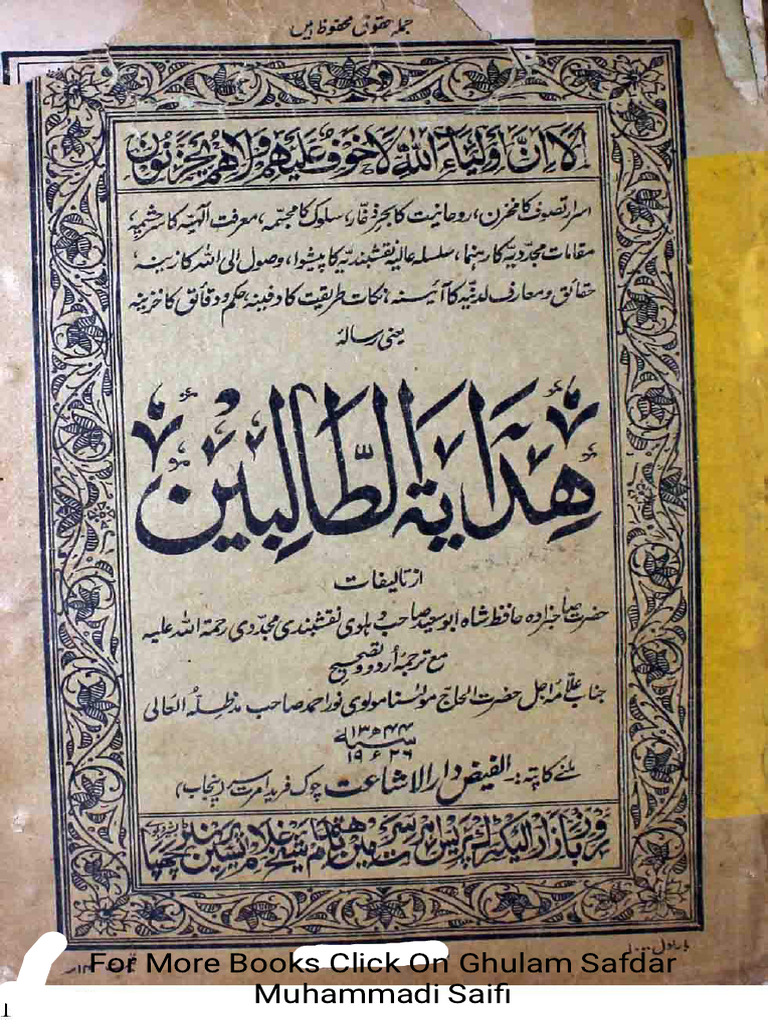 جملہ حقوق محفوظ ہیں
اَلَا اِنَّ اَوْلِیَاءَ اللّٰهِ لَا خَوْفٌ عَلَیْهِمْ وَلَا هُمْ یَحْزَنُوْنَ
اسرار تصوف کا مخزن، روحانیت کا بحر ذخار، سلوک کا مجسمہ، معرفت الٰہیہ کا سرچشمہ
مقامات مجددیہ کا رہنما، سلسلہ عالیہ نقشبندیہ کا پیشوا، وصول الی اللہ کا زینہ
حقائق و معارف لدنیہ کا آئینہ، نکات طریقت کا دفینہ، حکم و دقائق کا خزینہ
یعنی رسالہ
هِدَایَةُ الطَّالِبِیْن
از تالیفات
حضرت صاحبزادہ حافظ شاہ ابو سعید صاحب دہلوی نقشبندی مجددی رحمۃ اللہ علیہ
مع ترجمۂ اردو و تصحیح
جناب علامۂ اجل حضرت الحاج مولٰنا مولوی نور احمد صاحب مدظلہ العالی
۱۳۴۴ھ
سنہ
۱۹۲۶ء
ملنے کا پتہ:۔ الفیض دار الاشاعت چوک فرید امرتسر (پنجاب)
روز بازار الیکٹرک پریس امرتسر میں باہتمام شیخ غلام یٰسین پرنٹر چھپا
بار اول
For More Books Click On Ghulam Safdar
Muhammadi Saifi
1